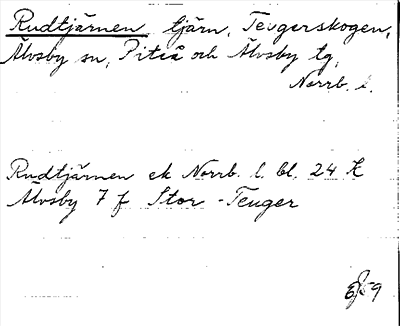 Rudtjärnen, tjärn, Teugerskogen,
Älvsby sn, Piteå och Älvsby tg,
Norrb. l.
Rudtjärnen ek Norrb. l. bl. 24 K
Älvsby 7 f Stor-Teuger